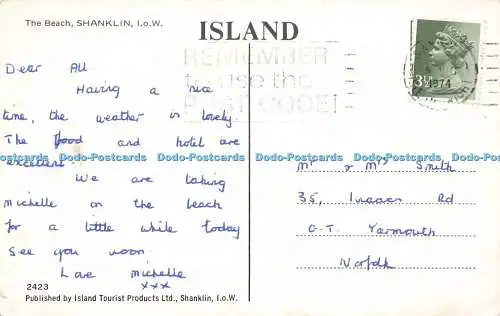 The Beach, SHANKLIN, I.o.W.
ISLAND
REMEMBER
to use the
POST CODE!
3½
1974
Dear All.
Having a nice
time, the weather is lovely.
The food and hotel are
excellent.
We are taking
michelle on the beach
for a little while today
See you soon.
Love michelle
xxx
Mr & Mrs Smith
35, Rd
G.T. Yarmouth
Norfolk
Dodo-Postcards Dodo-Postcards Dodo-Postcards Dodo-Postcards Dodo-Postcards
2423
Published by Island Tourist Products Ltd., Shanklin, I.o.W.